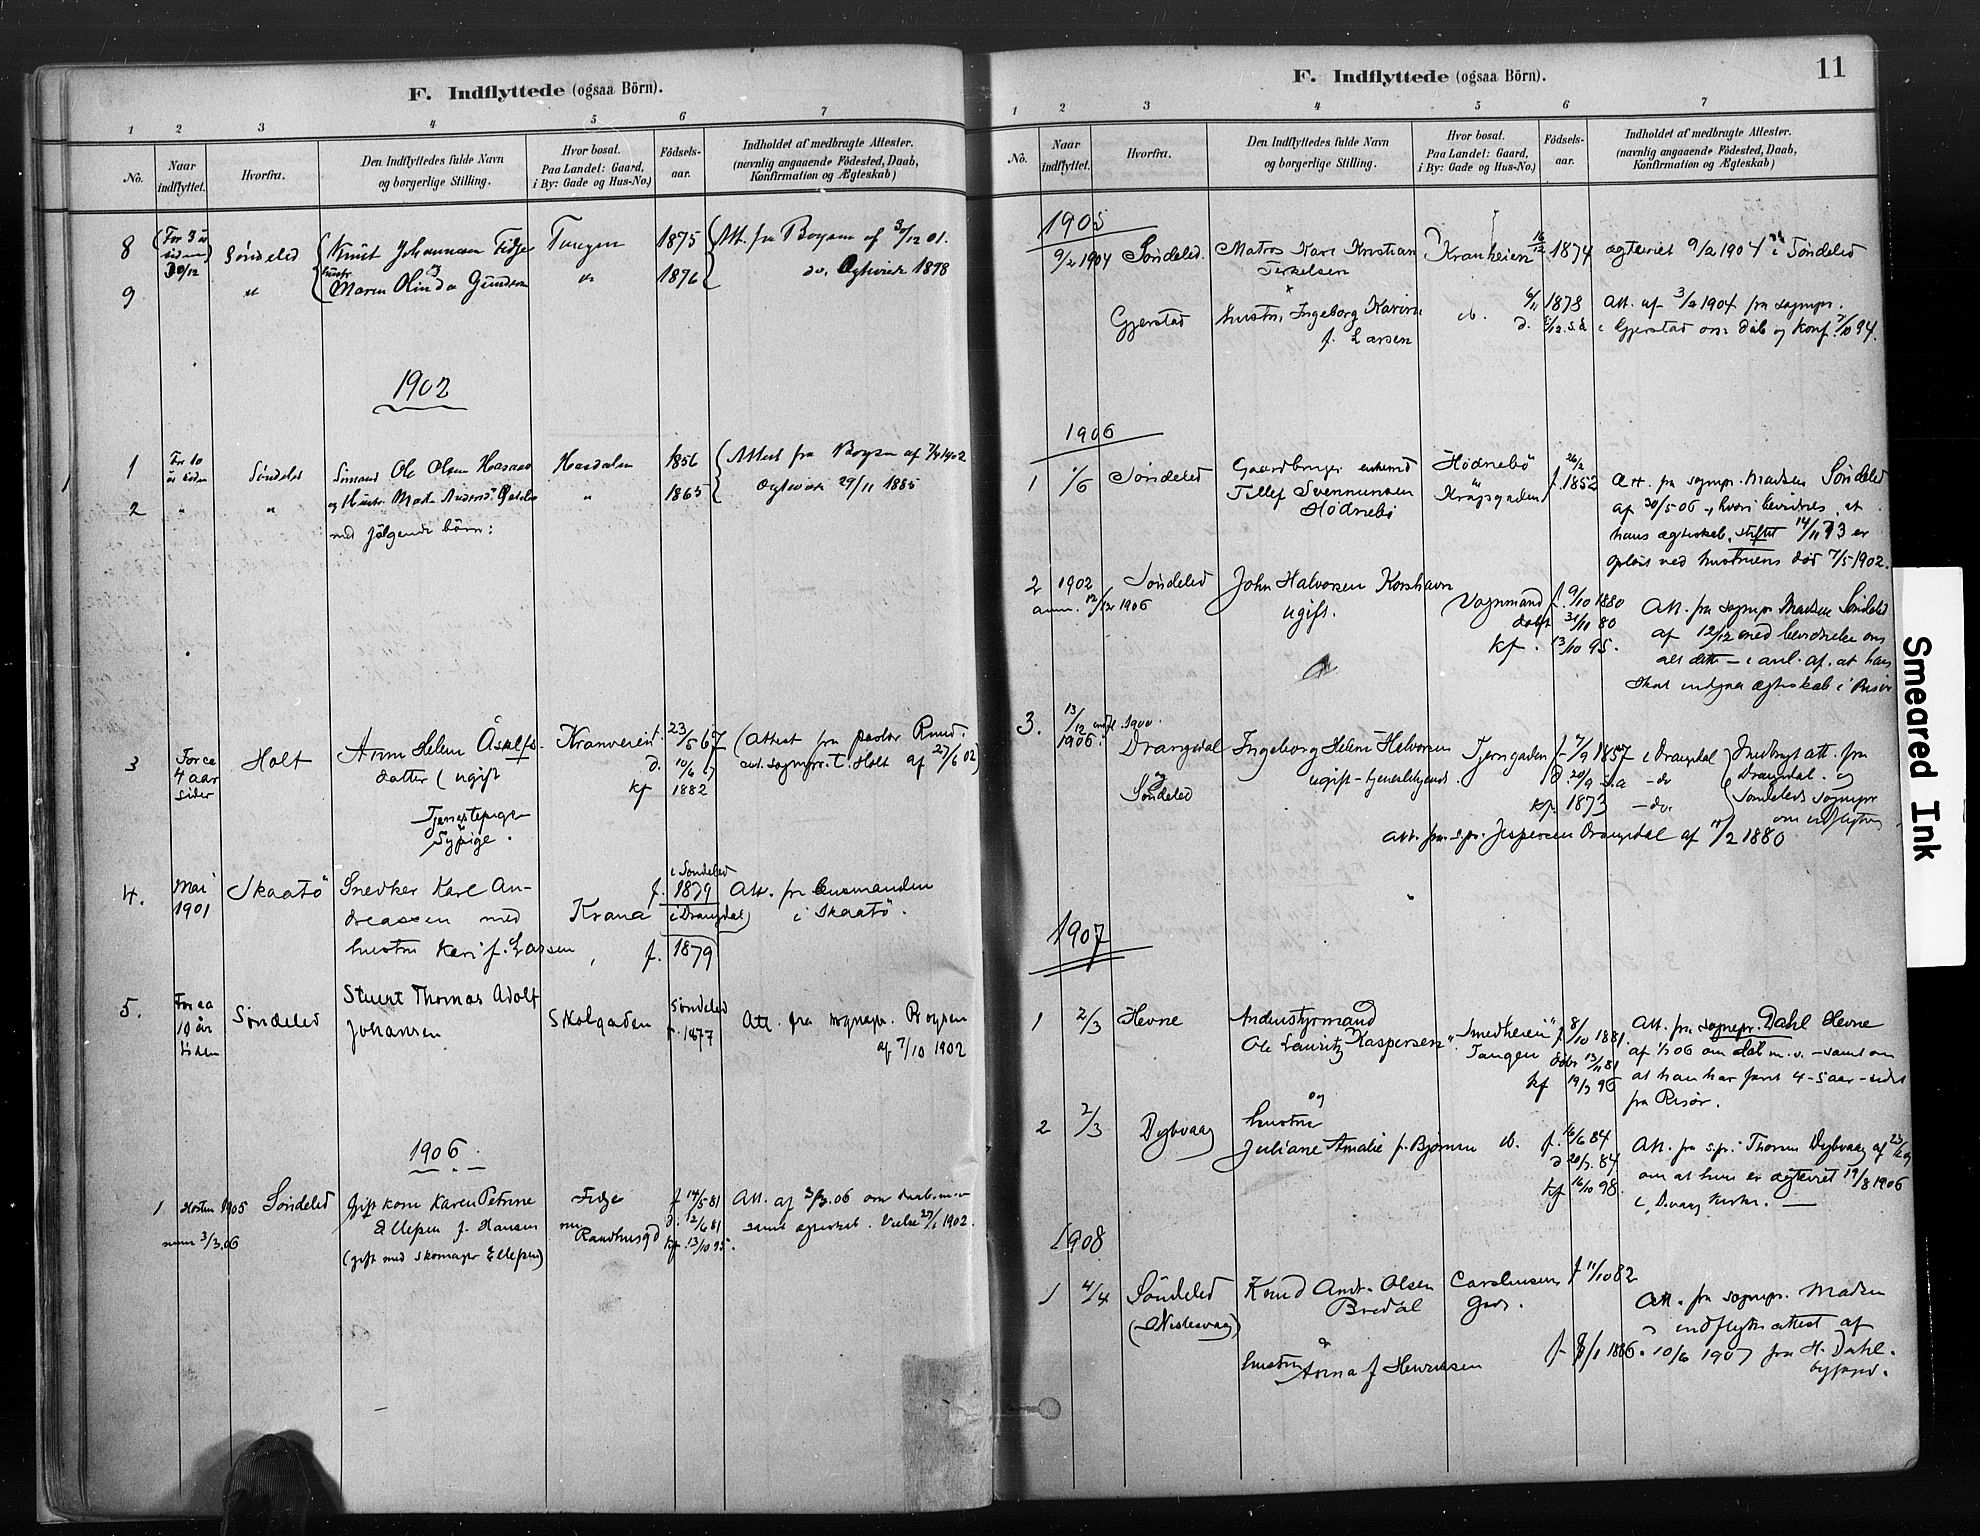 F. Indflyttede (ogsaa Börn).
1 2 3 4 5 6 7
No.
Naar indflyttet.
Hvorfra.
Den Indflyttedes fulde Navn
og borgerlige Stilling.
Hvor bosat.
Paa Landet: Gaard,
i By: Gade og Hus-No.)
Födsels-
aar.
Indholdet af medbragte Attester.
(navnlig angaaende Födested, Daab,
Konfirmation og Ægteskab)
8 For 3 år siden 30/12 Søndeled Knut Johannesen Fidje Tangen 1875 Att. fra Boysen af 30/12 01.
9 " hustr. Maren Olinda Gunders " 1876 do. Ægtevіet 1898
1902
1 For 10 år siden Søndeled Sömand Ole Olsen Hasaas Hasdalen 1856 Attest fra Boysen af 7/4 1902
2 " " og Hustr. Mathe " 1865 Ægteviet 29/11 1885
med følgende börn:
3 For ca 4 aar siden Holt Anne Helene Åsulfs- Kranveien 23/5 67 (Attest fra pastor Ruud.
datter (ugift d. 10/6 67 sognepr. t. Holt af 27/6 02)
kf 1882
Tjenestepige
Sypige.
4. Mai 1901 Skaatö Snedker Karl An- Krana f. i Søndeled 1879 Att. fra lensmanden
dreassen med i Drangdal i Skaatö.
hustru Kari f. Larssen, f. 1879
5. For ca 10 år siden Söndeled Stuert Thomas Adolf Skolgaden Söndeled f. 1877 Att. fra sognepr. Boysen
Johansen af 7/10 1902
1906.
1 Høsten 1905 Söndeled Gift kone Karen Petrine Fidje f 14/5 81 Att. af 3/3.06 om daab m.m
Ellefsen f. Hansen nu d. 12/6 81 samt ægteskab. Vielse 27/6 1902.
anm 3/3.06 (gift med skomager Ellefsen) Raadhusgd kf. 13/10 95.
F. Indflyttede (ogsaa Börn).
11
1 2 3 4 5 6 7
No.
Naar indflyttet.
Hvorfra.
Den Indflyttedes fulde Navn
og borgerlige Stilling.
Hvor bosat.
Paa Landet: Gaard,
i By: Gade og Hus-No.)
Födsels-
aar.
Indholdet af medbragte Attester.
(navnlig angaaende Födested, Daab,
Konfirmation og Ægteskab)
1905
9/2 1904 Søndeled. Matros Karl Kristian Kranheien 16/2 1874 ægteviet 9/2 1904 i Søndeled
Terkelsen
Gjerstad hustru, Ingeborg Karine ib. 6/11 1873 Att. af 3/2 1904 fra sognepr.
f. Larsen d. 5/12 s.å. i Gjerstad om dåb og konf. 7/10 94.
1906
1 1/6 Søndeled Gaardbruger enkemd Hödnebö 26/2 f. 1852 Att. fra sognepr. Madsen Söndeled
Tellef Svennunsen Kragsgaden af 30/5 06 -, hvori bevidnes, at
Hödnebö hans ægteskab, stiftet 14/11 73 er
opløst ved hustruens død 7/5 1902.
2 1902 Søndeled John Halvorsen Korshavn Vognmand f. 9/10 1880 Att. fra sognepr Madsen Söndeled
anm. 12/12 1906 ugift. døbt 31/10 80 af 12/12 med bevidnelse om
kf. 13/10 95. alt dette - i anl. af. at han
skal indgaa ægteskab i Risör
3. 13/12 1906. indfl. 1900. Drangdal Ingeborg Helene Halvorsen Tjerngaden f. 7/9 1857 i Drangdal Medbragt att. fra
og ugift - d 20/9 s.a - do Drangdal. og
Søndeled kf. 1873 - do. Söndeleds sognepr
om indflytn
att. fra s.pr. Jespersen Drangdal af 11/2 1880
1907
1 2/3 Hevne Andenstyrmand "Smedheien" f. 8/10 1881. Att. fra sognepr. Dahl Hevne
Ole Lauritz Kaspersen" Tangen døbt 13/11 81 af 1/3 06 om dåb m.v. - samt om
kf 19/7 96 at han har faret 4-5 aar - sidst
fra Risør.
og
2 2/3 Dybvaag hustru
Juliane Amalie f. Bjørnsen ib. f. 16/6 84 Att. fra s.pr. Thorsen Dybvaag af
d 20/7 84 om at hun er ægteviet 19/8 1906
kf 16/10 98. i Dvaag kirke. —
1908
1 4/4 Söndeled Knud Andr. Olsen Carstensens f 11/10 82
(Nidesvaag) Bredal Grd. Att. fra sognepr. Madsen
o indflytn attest af
hustru Anna f Henriksen f 8/1 1886. 10/6 1907 fra H. Dahl.
byfogd.
Smeared Ink